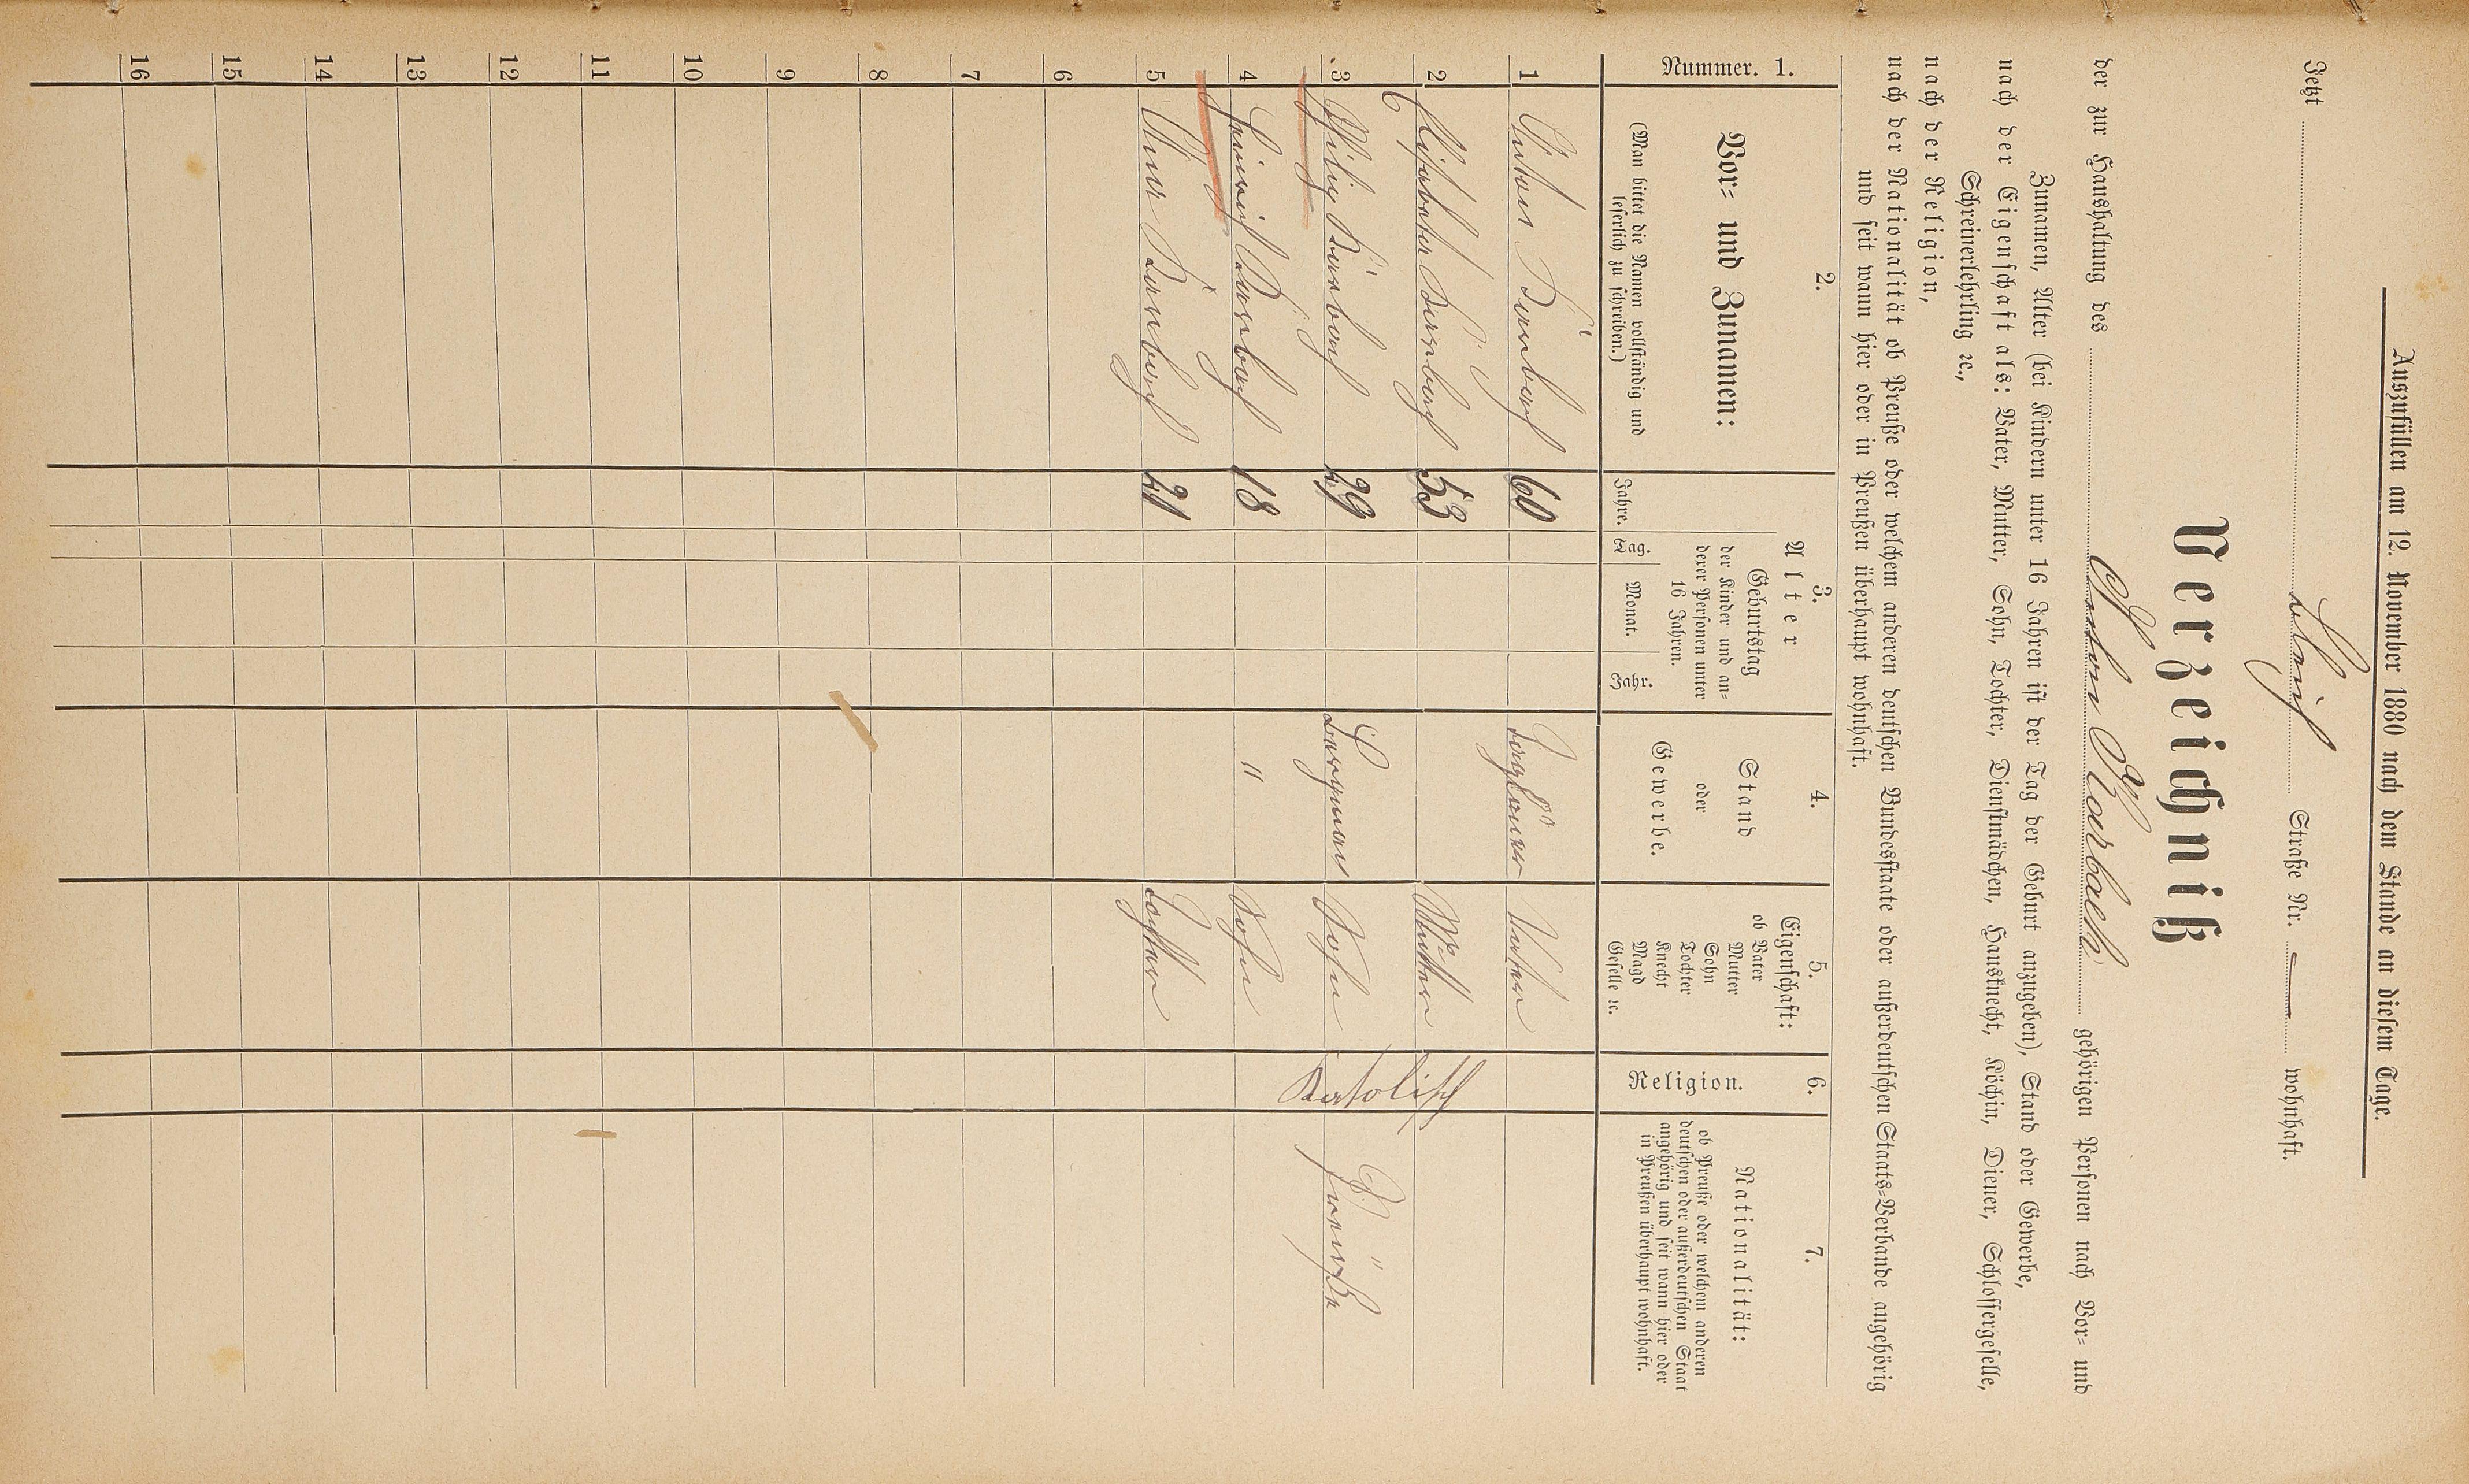 Auszufüllen am 12. November 1880 nach dem Stande an diesem Tage.
Jetzt Straße Nr. — wohnhaft.
Verzeichniß
der zur Haushaltung des Anton Karbach gehörigen Personen nach Vor- und
Zunamen, Alter (bei Kindern unter 16 Jahren ist der Tag der Geburt anzugeben), Stand oder Gewerbe,
nach der Eigenschaft als: Vater, Mutter, Sohn, Tochter, Dienstmädchen, Hausknecht, Köchin, Diener, Schlossergeselle,
Schreinerlehrling ꝛc.,
nach der Religion,
nach der Nationalität ob Preuße oder welchem anderen deutschen Bundesstaate oder außerdeutschen Staats-Verbande angehörig
und seit wann hier oder in Preußen überhaupt wohnhaft.
Nummer. 1.
2.
Vor- und Zunamen:
(Man bittet die Namen vollständig und
leserlich zu schreiben.)
3.
Alter
Jahre.
Geburtstag
der Kinder und an-
derer Personen unter
16 Jahren.
Tag. Monat. Jahr.
4.
Stand
oder
Gewerbe.
5.
Eigenschaft:
ob Vater
Mutter
Sohn
Tochter
Knecht
Magd
Geselle ꝛc.
6.
Religion.
7.
Nationalität:
ob Preuße oder welchem anderen
deutschen oder außerdeutschen Staat
angehörig und seit wann hier oder
in Preußen überhaupt wohnhaft.
1 Anton Karbach 60 Taglöhner Vater
2 Elisabeth Karbach 53 Mutter
3 Philip Karbach 29 Bergmann Sohn Katolisch Preuße
4 Heinrich Karbach 18 " Sohn
5 Anna Karbach 21 Tochter
6
7
8
9
10
11
12
13
14
15
16